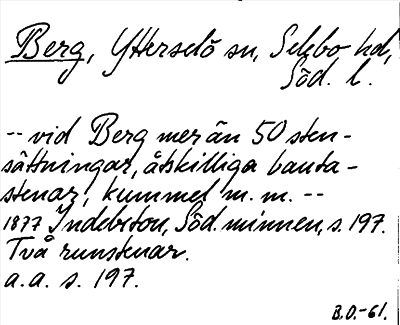 Berg, Ytterselö sn, Selebo hd,
Söd. l.
-- vid Berg mer än 50 sten-
sättningar, åtskilliga bauta-
stenar, kummel m. m. --
1877 Indebetou, Söd. minnen, s. 197.
Två runstenar.
a.a. s. 197.
B.O.-61.